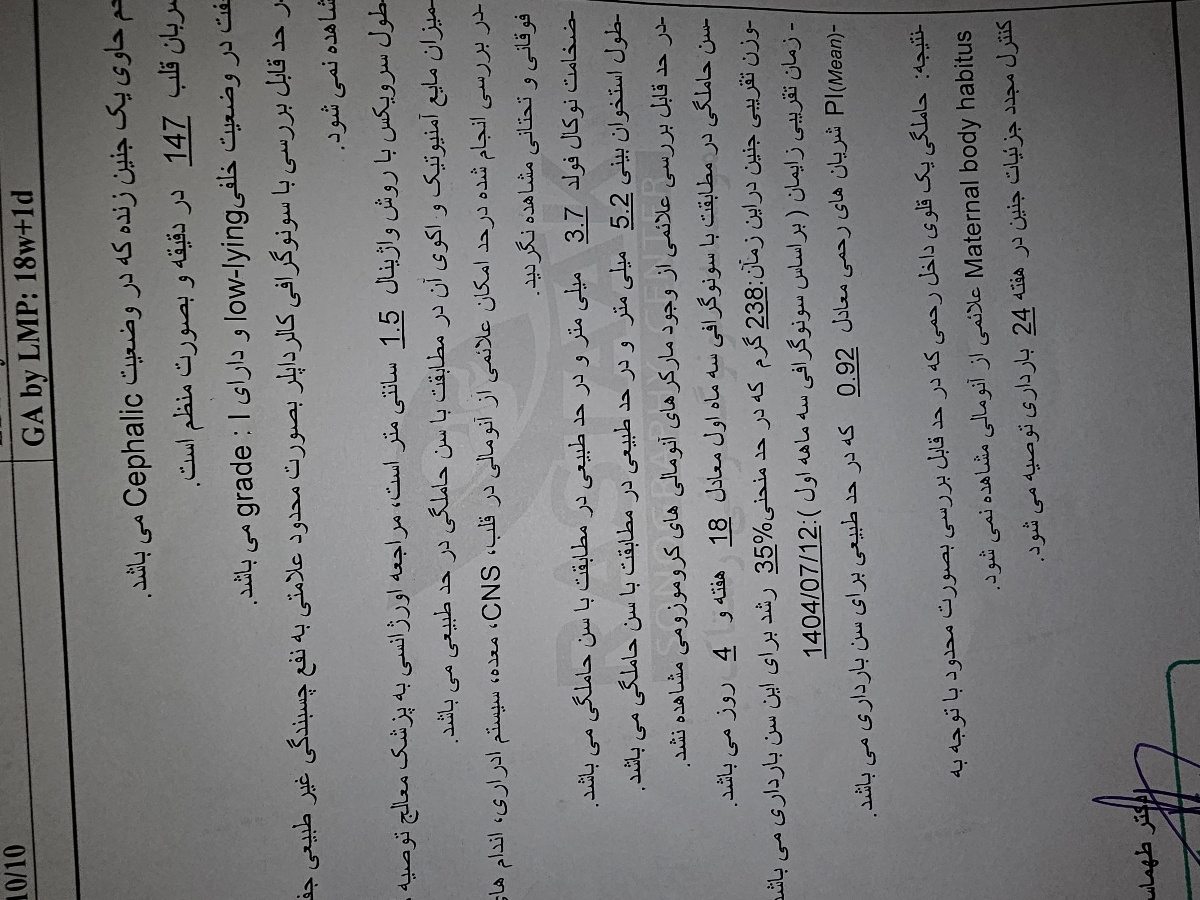 10/10
GA by LMP: 18w+1d
حاوی یک جنین زنده که در وضعیت Cephalic می باشد.
قلب 147 در دقیقه و بصورت منظم است.
در وضعیت خلفی low-lying و دارای grade : I می باشد.
حد قابل بررسی با سونوگرافی کالرداپلر بصورت محدود علامتی به نفع چسبندگی غیر طبیعی
نمی شود.
طول سرویکس با روش واژینال 1.5 سانتی متر است، مراجعه اورژانسی به پزشک معالج توصیه
-میزان مایع آمنیوتیک و اکوی آن در مطابقت با سن حاملگی در حد طبیعی می باشد.
-در بررسی انجام شده درحد امکان علائمی از آنومالی در قلب، CNS، معده، سیستم ادراری، اندام های
فوقانی و تحتانی مشاهده نگردید.
-ضخامت نوکال فولد 3.7 میلی متر و در حد طبیعی در مطابقت با سن حاملگی می باشد.
-طول استخوان بینی 5.2 میلی متر و در حد طبیعی در مطابقت با سن حاملگی می باشد.
-در حد قابل بررسی علائمی از وجود مارکرهای آنومالی های کروموزومی مشاهده نشد.
-سن حاملگی در مطابقت با سونوگرافی سه ماه اول معادل 18 هفته و 4 روز می باشد.
-وزن تقریبی جنین دراین زمان:238 گرم که در حد منحنی 35% رشد برای این سن بارداری می باشد
- زمان تقریبی زایمان ( براساس سونوگرافی سه ماهه اول ):1404/07/12
-PI(Mean) شریان های رحمی معادل 0.92 که در حد طبیعی برای سن بارداری می باشد.
نتیجه: حاملگی یک قلوی داخل رحمی که در حد قابل بررسی بصورت محدود با توجه به
Maternal body habitus علائمی از آنومالی مشاهده نمی شود.
کنترل مجدد جزئیات جنین در هفته 24 بارداری توصیه می شود.
RASTAK
SONOGRAPHY CENTER